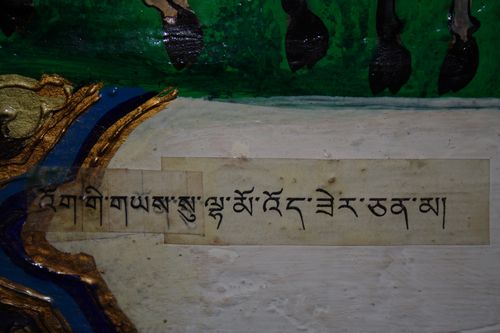 འོག་གི་གཡས་སུ་ལྷ་མོ་འོད་ཟེར་ཅན་མ།